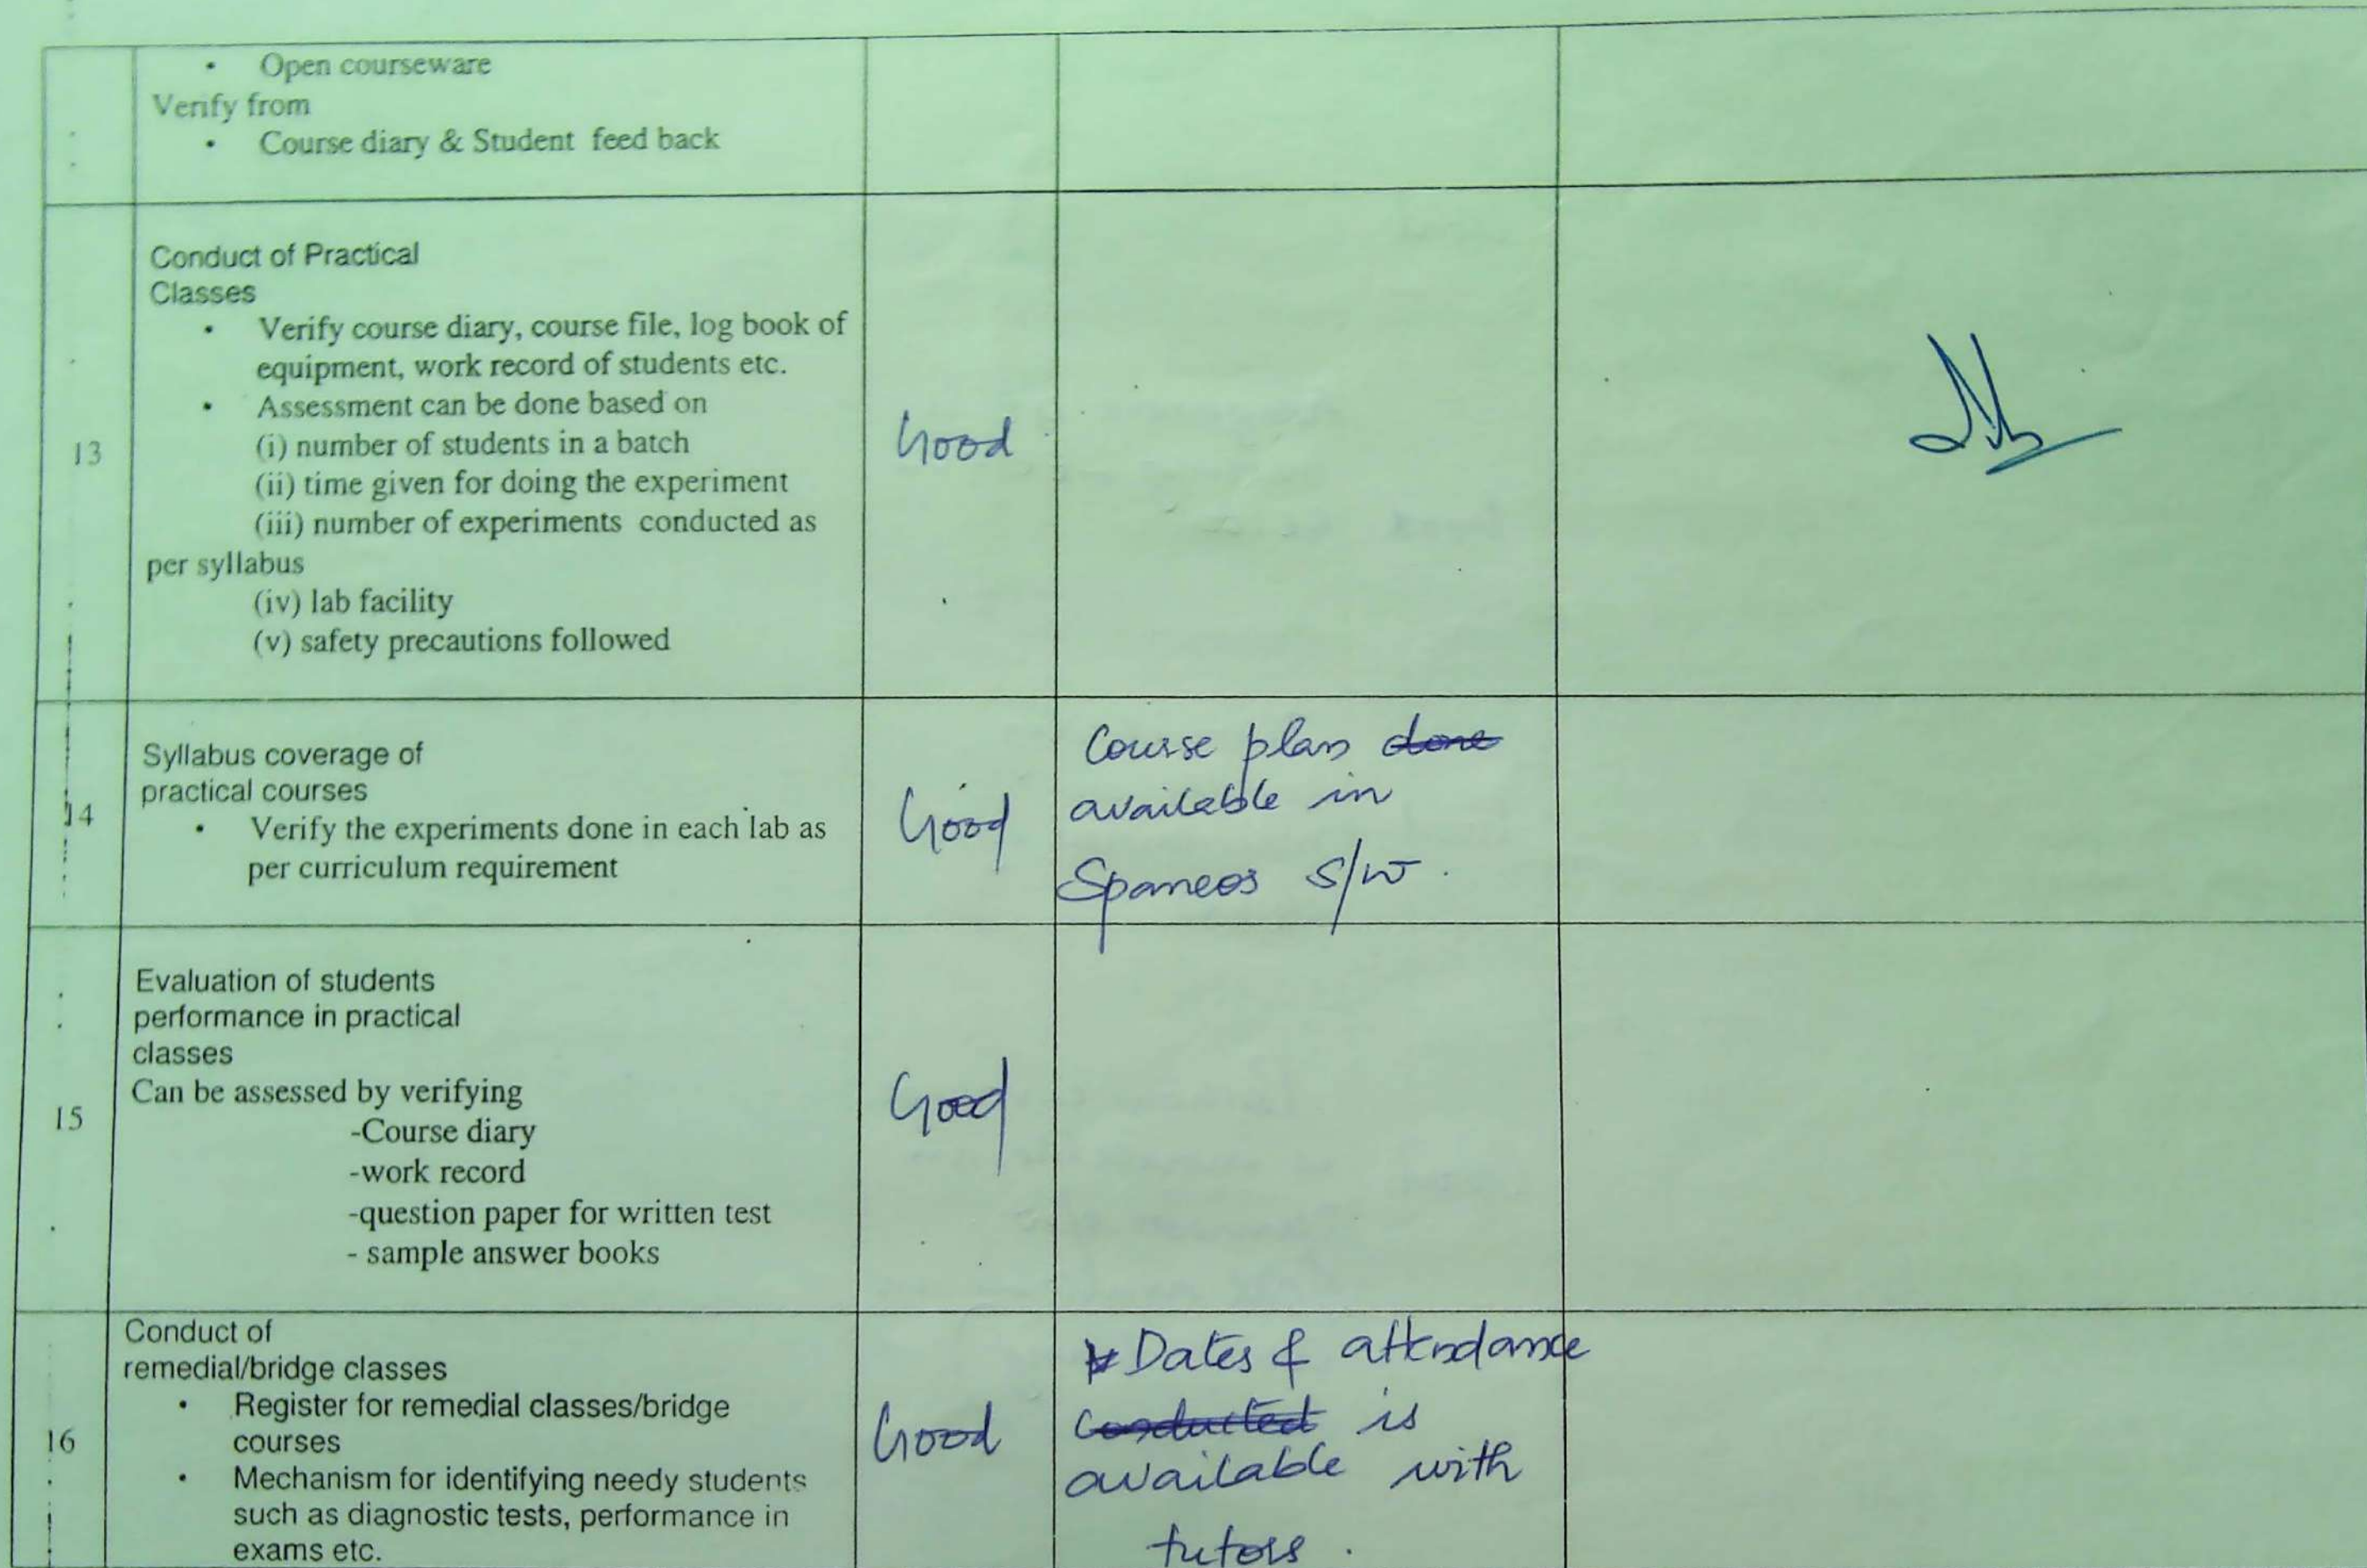 • Open courseware
Verify from
• Course diary & Student feed back
Conduct of Practical
Classes
• Verify course diary, course file, log book of
equipment, work record of students etc.
• Assessment can be done based on
(i) number of students in a batch
13
(ii) time given for doing the experiment
(iii) number of experiments conducted as
per syllabus
(iv) lab facility
(v) safety precautions followed
Good
Syllabus coverage of
practical courses
14
• Verify the experiments done in each lab as
per curriculum requirement
Good
Course plan done
available in
Spaneos S/W.
Evaluation of students
performance in practical
classes
Can be assessed by verifying
15
-Course diary
-work record
-question paper for written test
- sample answer books
Good
Conduct of
remedial/bridge classes
• Register for remedial classes/bridge
16
courses
• Mechanism for identifying needy students
such as diagnostic tests, performance in
exams etc.
Good
Dates & attendance
conducted is
available with
tutors.